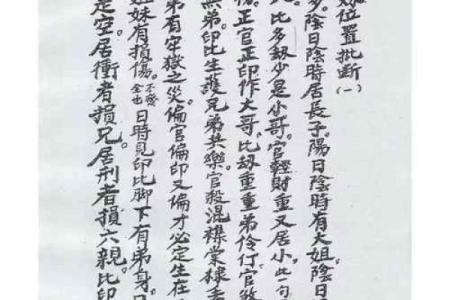 位置批断(一)
多。陰日陰時居長子。陽日陰時有大姐。陰日
比多劫少是小哥。官輕財重又居小。此句
正官正印作大哥。比劫重重弟伶仃。官煞
無弟。印比生護兄弟共樂。官殺混襍棠棣
弟有牢獄之災。偏官偏印又偏才必定生在
姐妹有損傷。不盡全也日時見印比脚下有弟身。
是空。居衝者損兄。居刑者損六親。比印